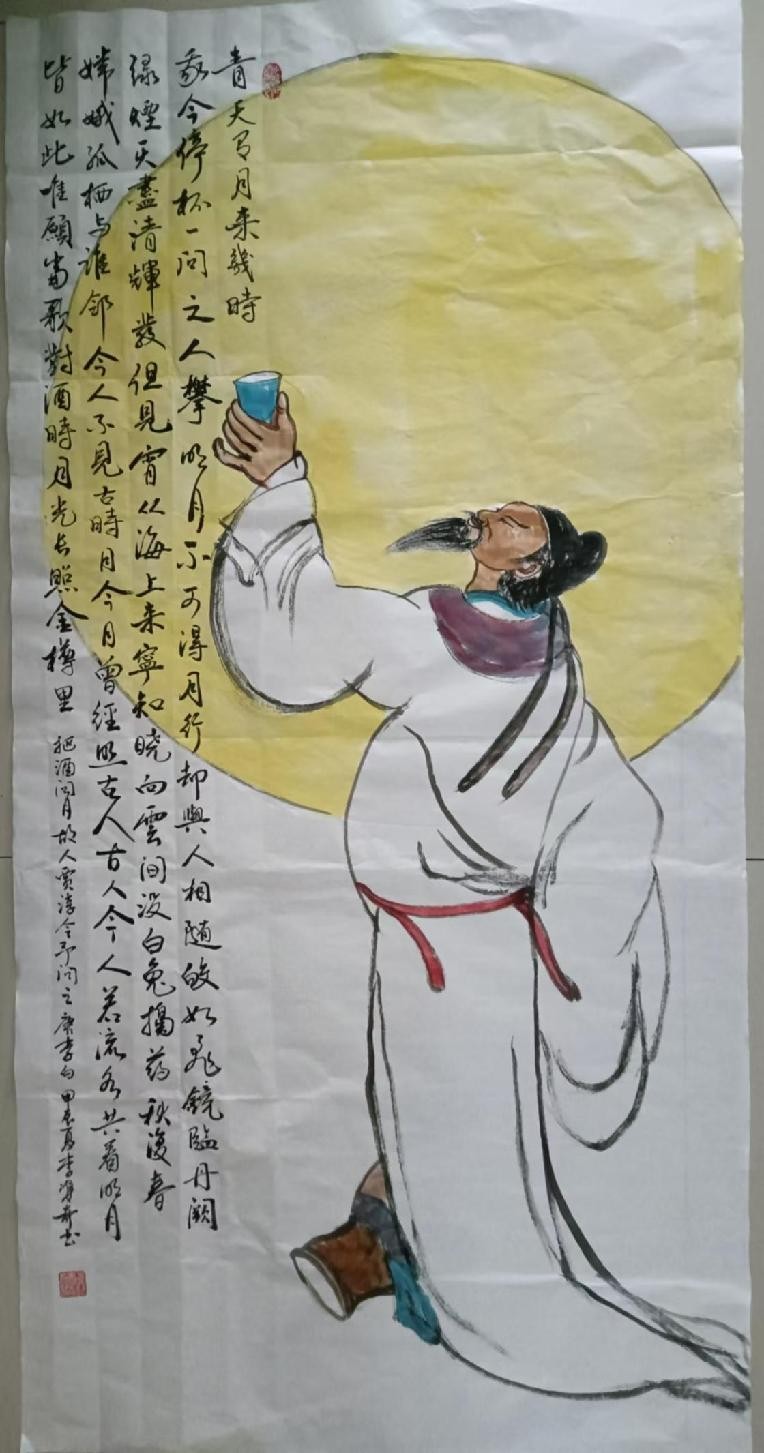 青天有月来幾時
我今停杯一问之人攀明月不可得月行却與人相随皎如飛鏡臨丹阙
绿煙灭盡清輝發但見宵从海上来寧知晓向雲间没白兔搗药秋復春
嫦娥孤栖与谁邻今人不見古時月今月曾經照古人古人今人若流水共看明月
皆如此唯願当歌對酒時月光长照金樽里 把酒问月故人贾淳令予问之 唐李白 甲辰夏李